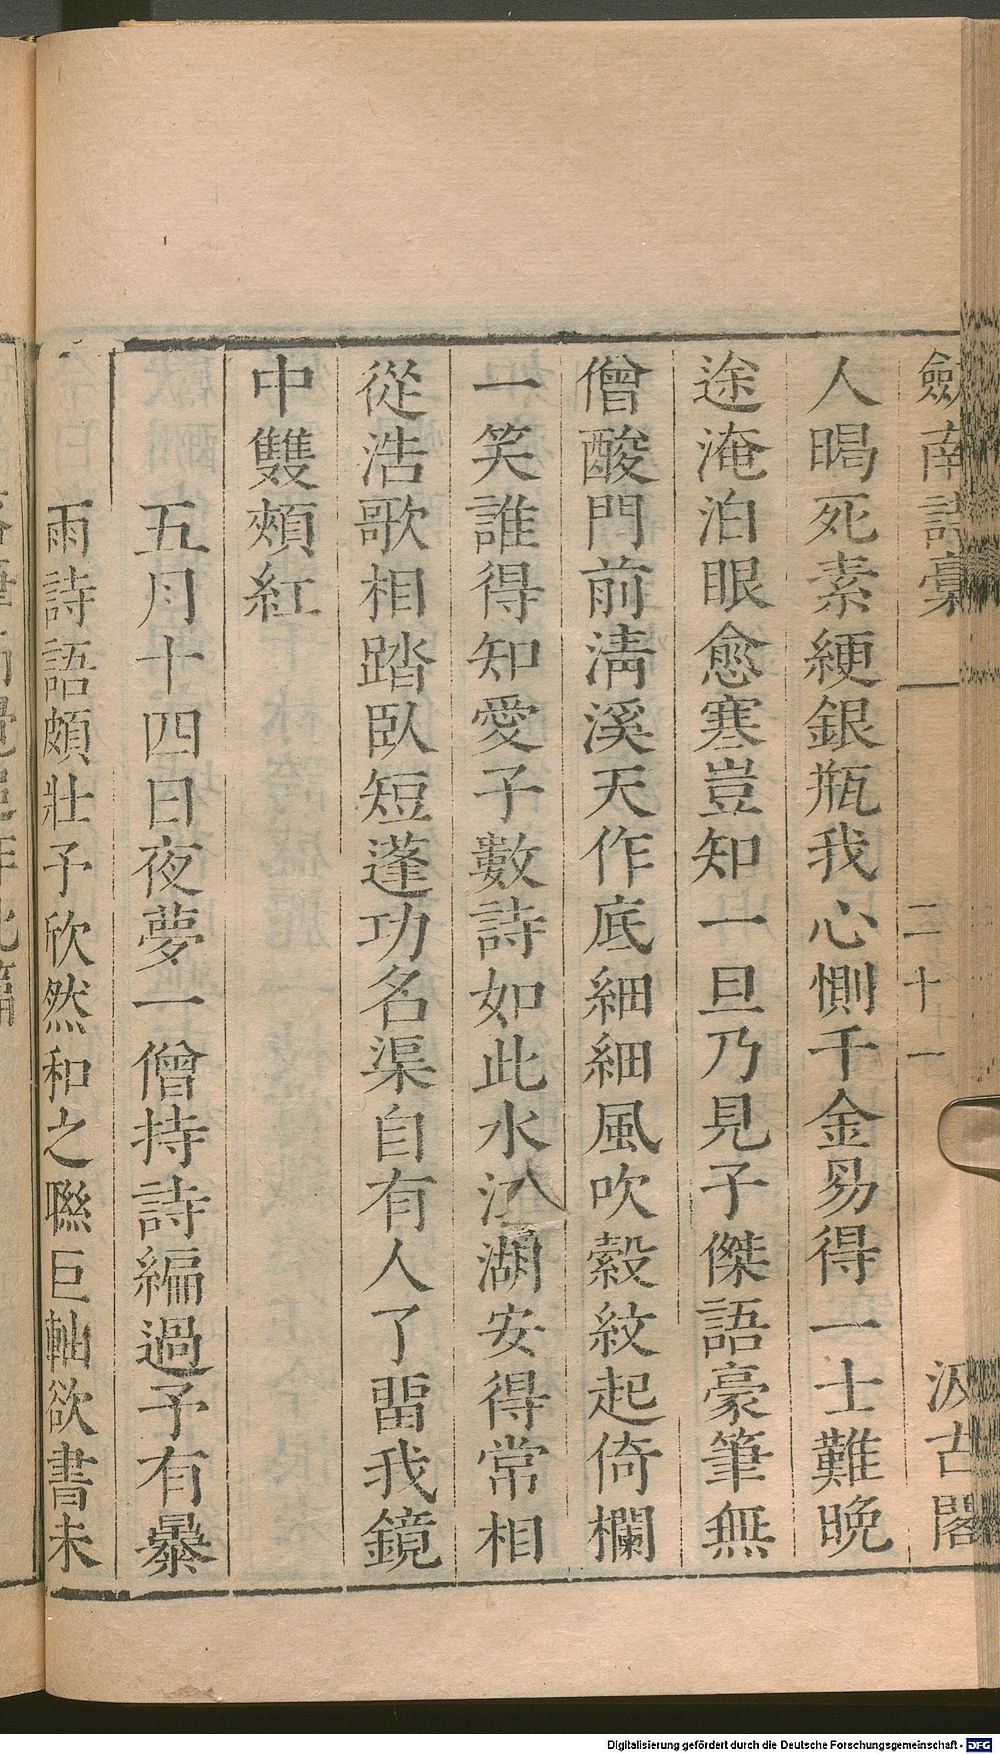 劒南詩稾 一 二十一 汲古閣
人暍死素綆銀瓶我心惻千金易得一士難晚
途淹泊眼愈寒豈知一旦乃見子傑語豪筆無
僧酸門前淸溪天作底細細風吹縠紋起倚欄
一笑誰得知愛子數詩如此水江湖安得常相
從浩歌相踏臥短蓬功名渠自有人了畱我鏡
中雙頰紅
五月十四日夜夢一僧持詩編過予有暴
雨詩語頗壯予欣然和之聮巨軸欲書未
Digitalisierung gefördert durch die Deutsche Forschungsgemeinschaft - DFG